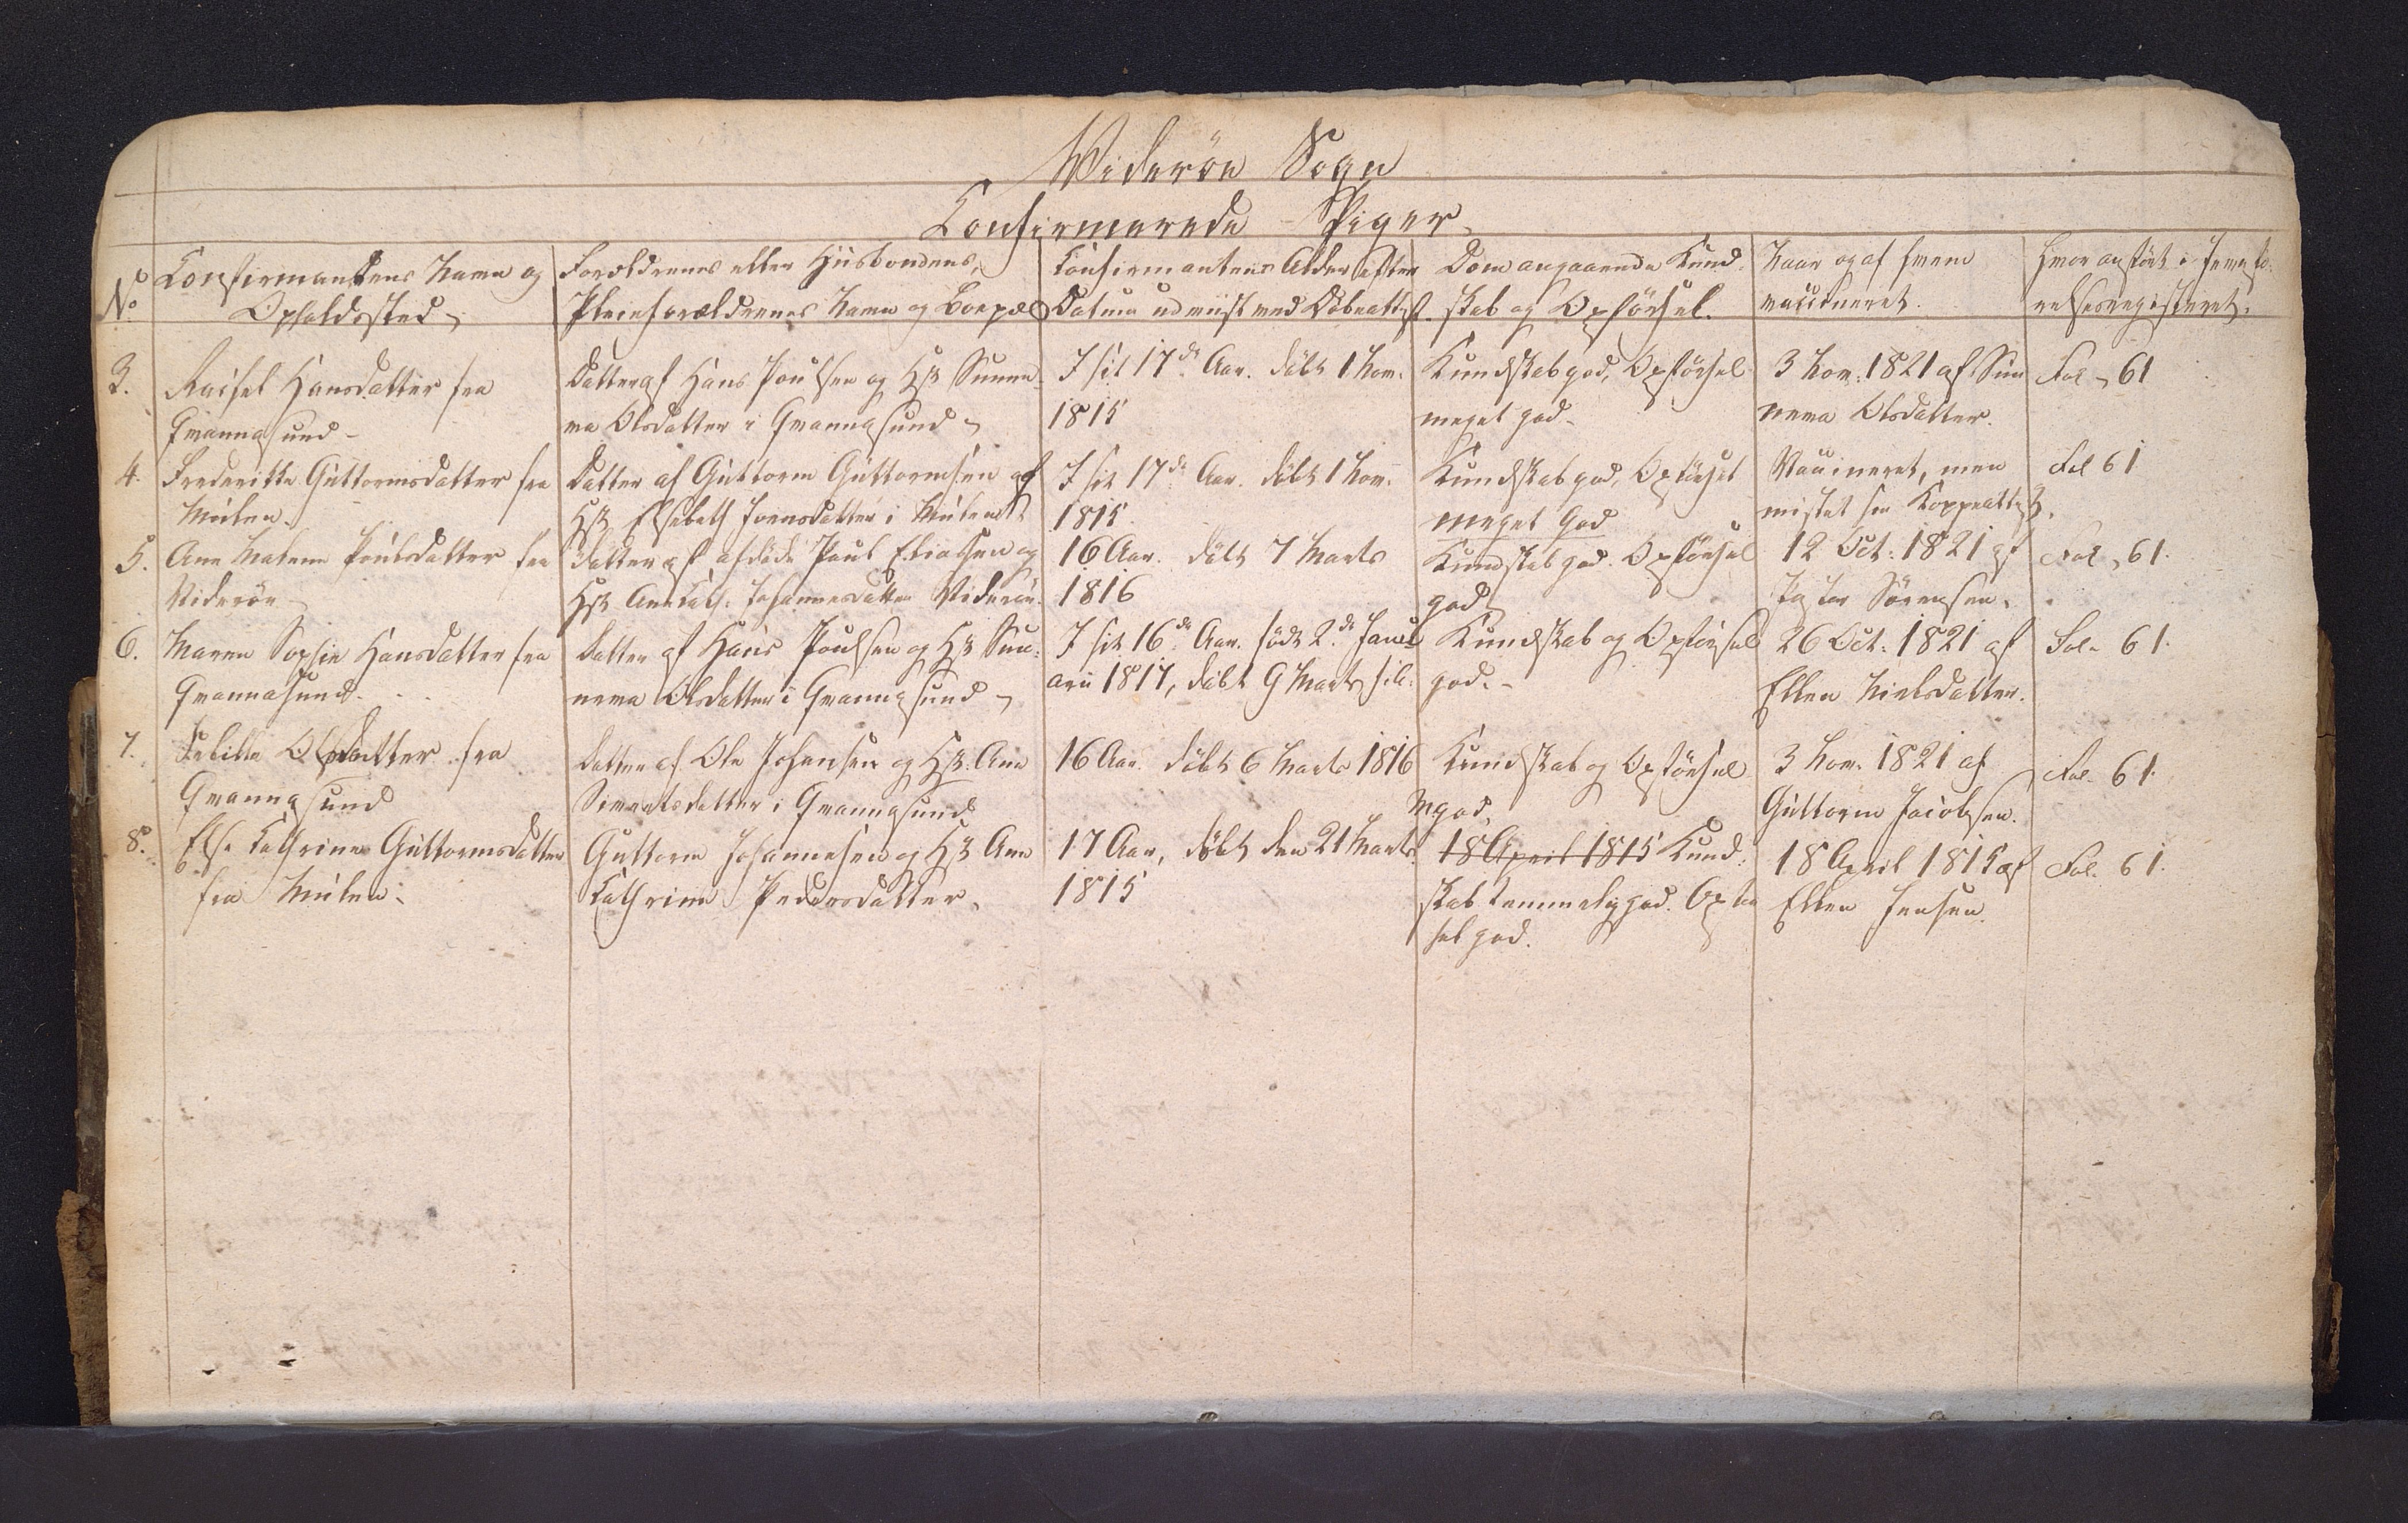 Viderøe Sogn
Confirmerede Piger
No
Confirmantens Navn og
Opholdssted
Forældrenes eller Huusbondens,
Pleieforældrenes Navn og Boepæl
Confirmantens Alder efter
Datum udviist ved Døbeattest.
Dom angaaende Kund-
skab og Opførsel.
Naar og af hvem
vaccineret.
Hvor anført i Jevnfø-
relsesregisteret.
3.
Rachel Hansdatter fra
Qvannasund
Datter af Hans Poulsen og Hst Sunne-
va Olsdatter i Qvannasund
I sit 17de Aar. døbt 1 Nov.
1815
Kundskab god, Opførsel
meget god
3 Nov: 1821 af Sun
neva Olsdatter.
Fol 61
4.
Frederikke Guttormsdatter fra
Mulen
Datter af Guttorm Guttormsen og
Hst Elsebeth Joensdatter i Mulen
I sit 17de Aar. døbt 1 Nov.
1815
Kundskab god, Opførsel
meget God
Vaccineret, men
mistet sin Koppeattest.
Fol 61
5.
Ane Malene Poulsdatter fra
Viderøe
Datter af afdøde Poul Eliasen og
Hst Ane Cath: Johannesdatter Viderøe.
16 Aar. døbt 7 Marts
1816
Kundskab god. Opførsel
god
12 Oct: 1821 af
Sørensen.
Fol 61.
6.
Maren Sophie Hansdatter fra
Qvannasund.
Datter af Hans Poulsen og Hst Sun-
neva Olsdatter i Qvannasund
I sit 16de Aar. født 2de Janu-
arii 1817, døbt 9 Marts s. A.
Kundskab og Opførsel
god.
26 Oct: 1821 af
Ellen Nielsdatter.
Fol. 61.
7.
Sebille Olsdatter fra
Qvannasund
Datter af Ole Johansen og Hst: Ane
Simonsdatter i Qvannasund
16 Aar døbt 6 Marts 1816
Kundskab og Opførsel
mgod.
3 Nov. 1821 af
Guttorm Jacobsen.
Fol. 61.
8.
Else Cathrine Guttormsdatter
fra Mulen.
Guttorm Johannesen og Hst Ane
Cathrine Pedersdatter.
17 Aar, døbt den 21 Marts
1815
18 April 1815 Kund-
skab temmelig god. Opfør
sel god.
18 April 1815 af
Ellen Jensen.
Fol. 61.